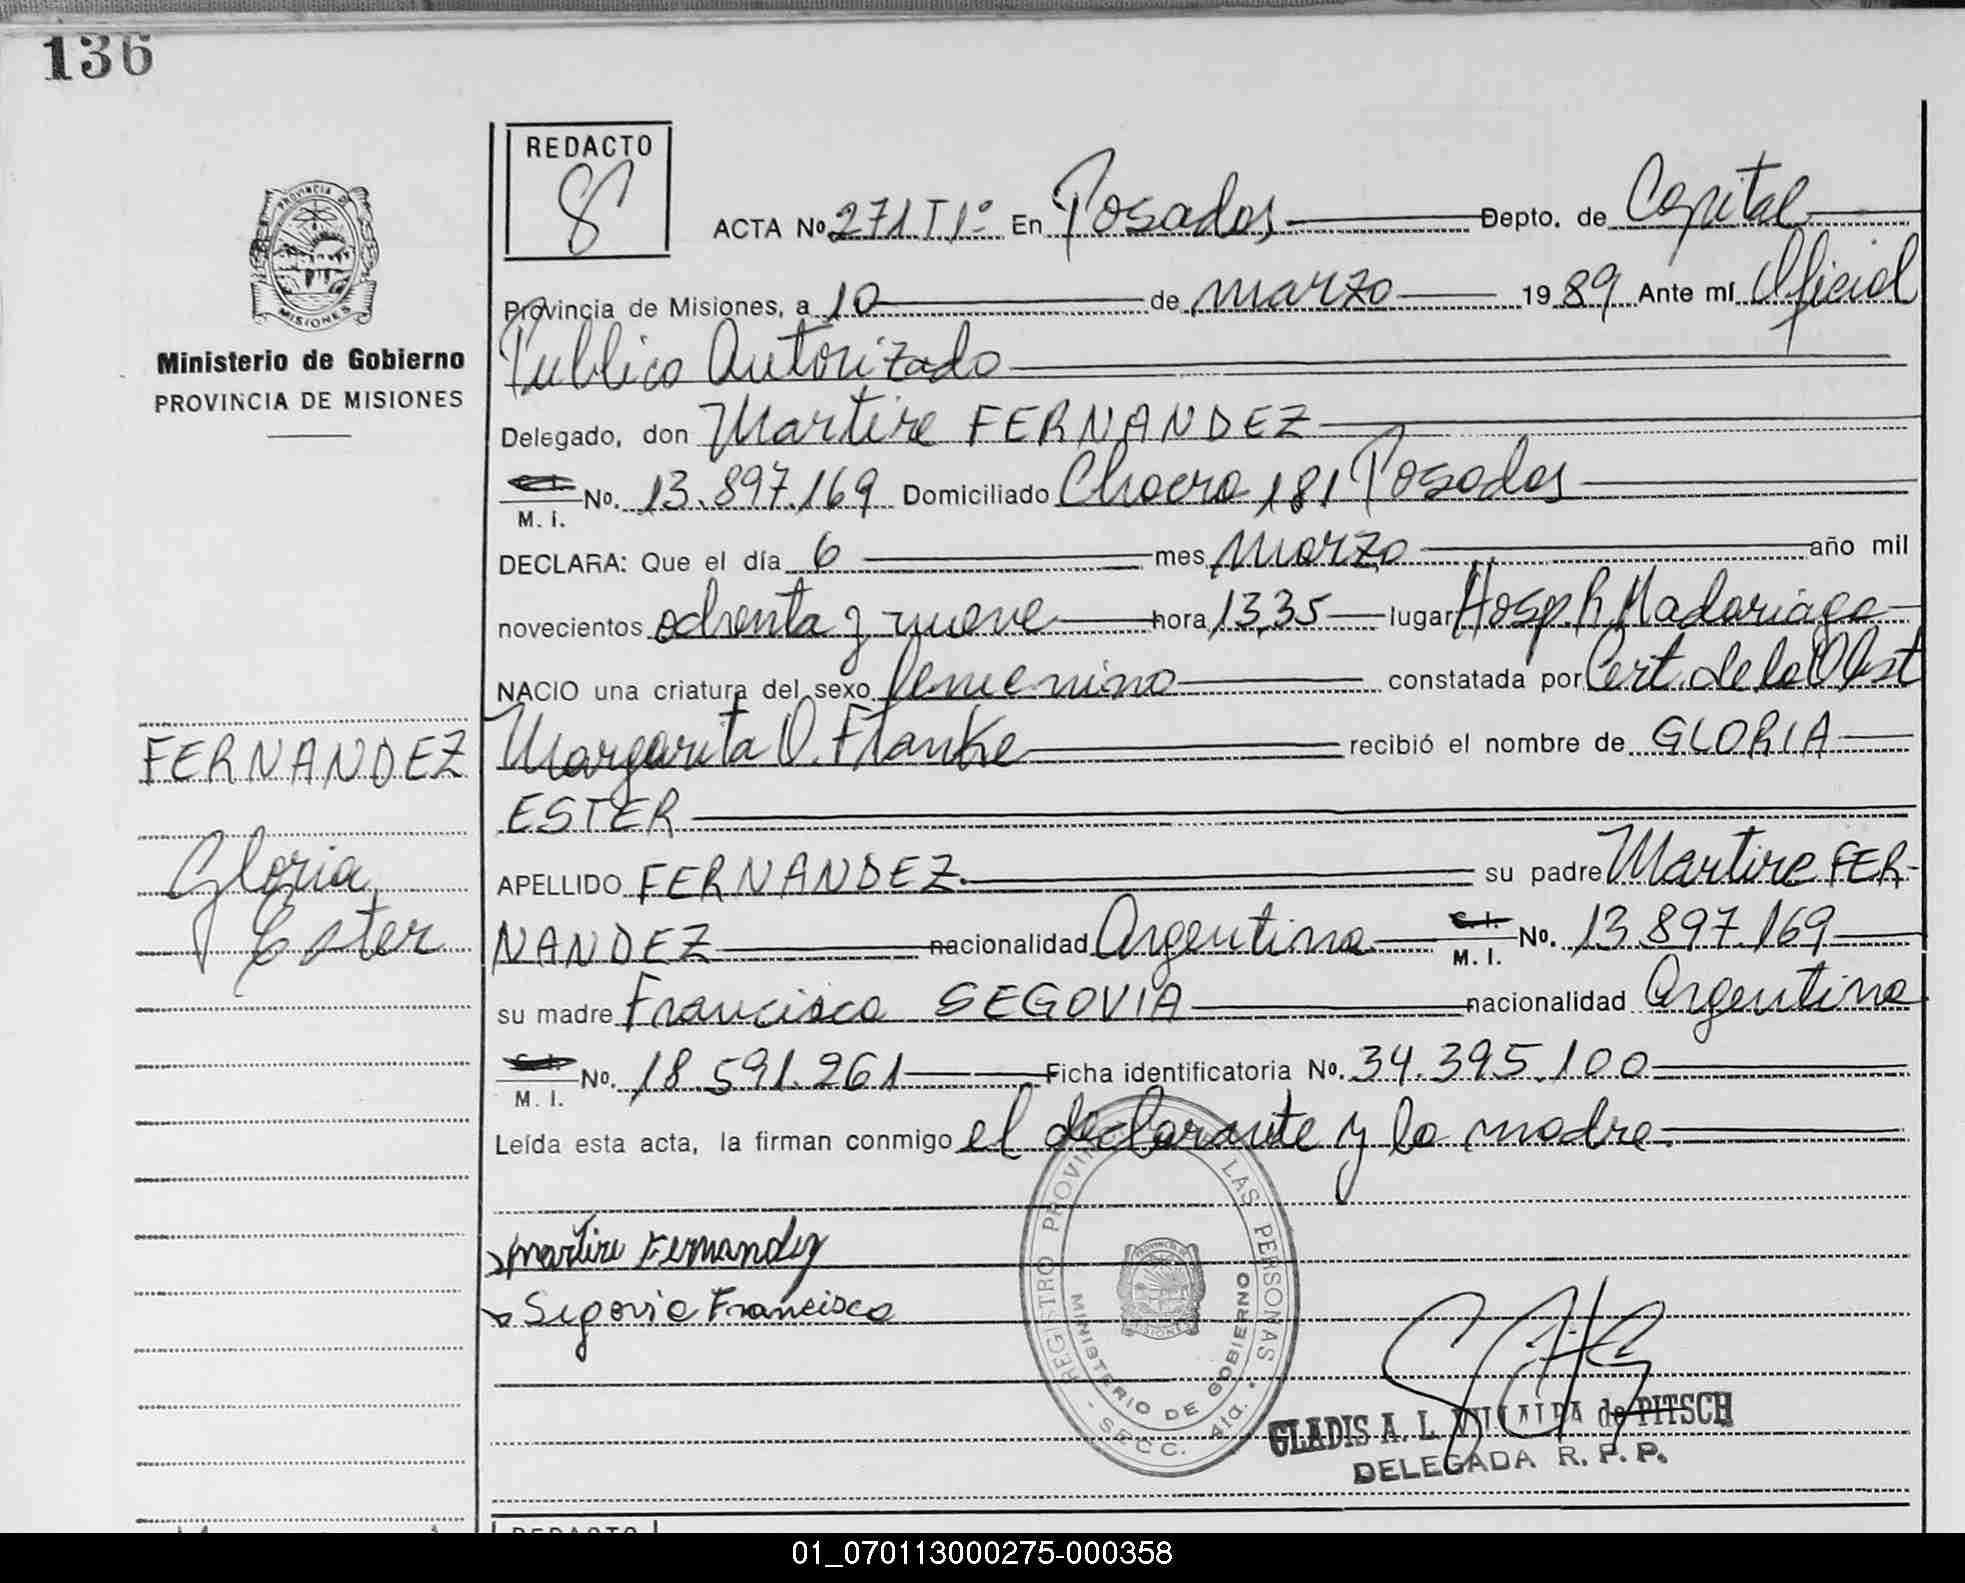 136
REDACTO
8
ACTA No 271 T 1º En Posadas Depto. de Capital
PROVINCIA DE
MISIONES
Provincia de Misiones, a 10 de marzo 1989 Ante mí Oficial
Ministerio de Gobierno
PROVINCIA DE MISIONES
Publico Autorizado
Delegado, don Martire FERNANDEZ
M. I. No. 13.897.169 Domiciliado Chacra 181 Posadas
DECLARA: Que el día 6 mes marzo año mil
novecientos ochenta y nueve hora 13,35 lugar Hosp. R Madariaga
NACIO una criatura del sexo femenino constatada por Cert. de la Obst
FERNANDEZ
Margarita O. Franke recibió el nombre de GLORIA
ESTER
Gloria
Ester
APELLIDO FERNANDEZ su padre Martire FER-
NANDEZ nacionalidad Argentina C.I. M. I. No. 13.897.169
su madre Francisca SEGOVIA nacionalidad Argentina
C.I. M. I. No. 18.591.261 Ficha identificatoria No. 34.395.100
Leída esta acta, la firman conmigo el declarante y la madre.
Martire Fernandez
Segovia Francisca
REGISTRO PROVIN LAS PERSONAS
MINISTERIO DE GOBIERNO
PROVINCIA DE
MISIONES
- SECC. 4ta. -
GLADIS A. L. de PITSCH
DELEGADA R. P. P.
REDACTO
01_070113000275-000358